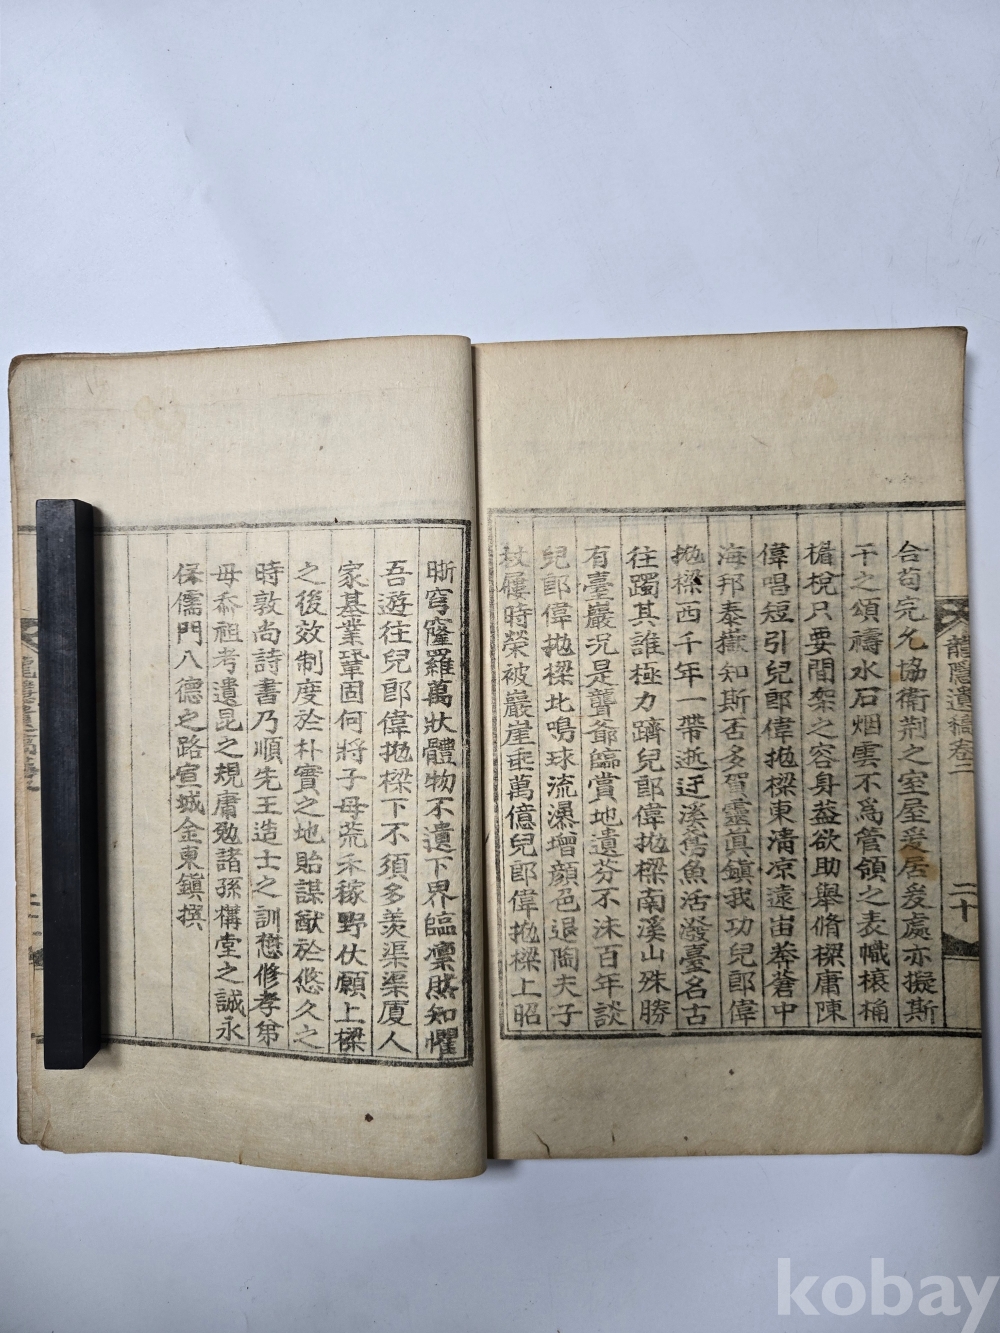 合苟完允協衛荆之室屋爰居爰處亦擬斯
干之頌禱水石烟雲不爲管領之表幟榱桷
楣梲只要間架之容身益欲助舉脩樑庸陳
偉唱短引兒郎偉拋樑東淸凉遠宙莽蒼中
海邦泰嶽知斯否多賀靈眞鎭我功兒郎偉
拋樑西千年一帶逝迂溪鳶魚活潑臺名古
往躅其誰極力躋兒郎偉拋樑南溪山殊勝
有臺巖况是聾爺臨賞地遺芬不沬百年談
兒郎偉拋樑北鳴球流瀑增顔色退陶夫子
杖屨時榮被巖崖垂萬億兒郎偉拋樑上昭
晣穹窿羅萬狀體物不遺下界臨凛然知懼
吾遊往兒郎偉拋樑下不須多羡渠渠厦人
家基業鞏固何將子母荒禾稼野伏願上樑
之後效制度於朴實之地貽謀猷於悠久之
時敦尚詩書乃順先王造士之訓懋修孝第
母忝祖考遺昆之規庸勉諸孫構堂之誠永
保儒門八德之路宣城金東鎭撰
龍隱遺稿卷二
二十
kobay